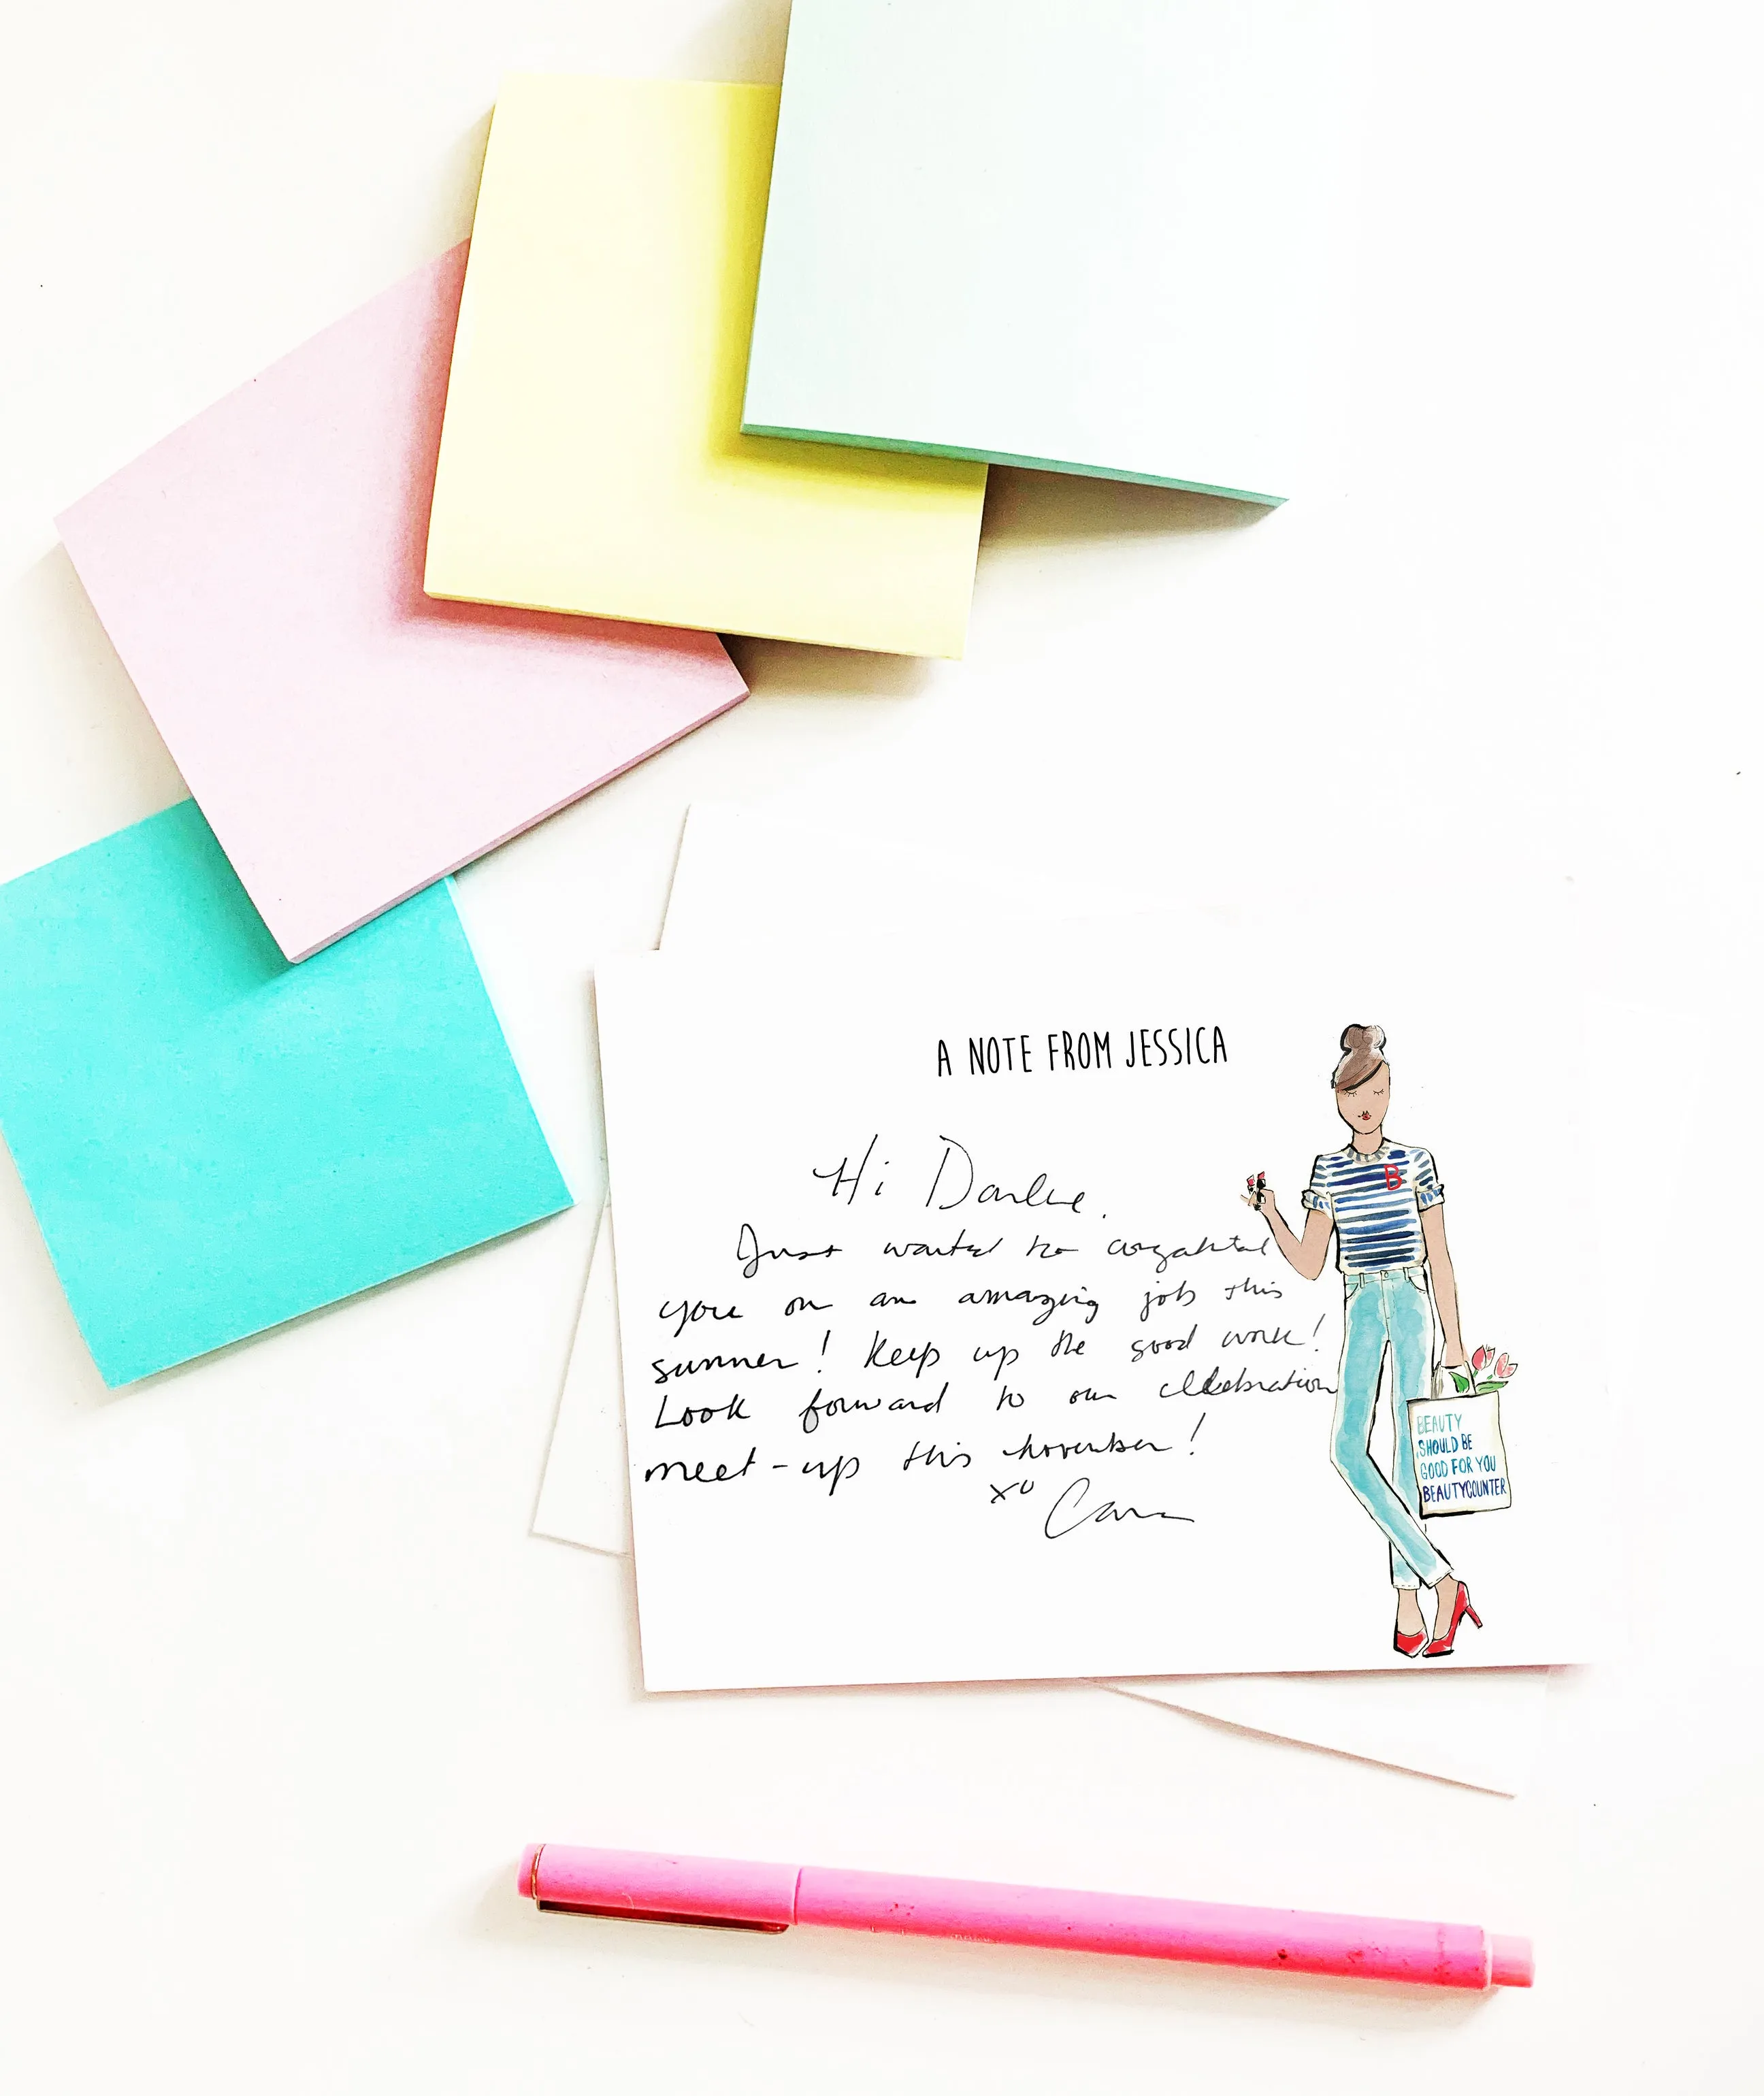 A NOTE FROM JESSICA
Hi
Just wanted to
you on an amazing job this
summer! Keep up the good work!
Look forward to our celebration
meet-up this November!
xo Cara
B
BEAUTY
SHOULD BE
GOOD FOR YOU
BEAUTYCOUNTER